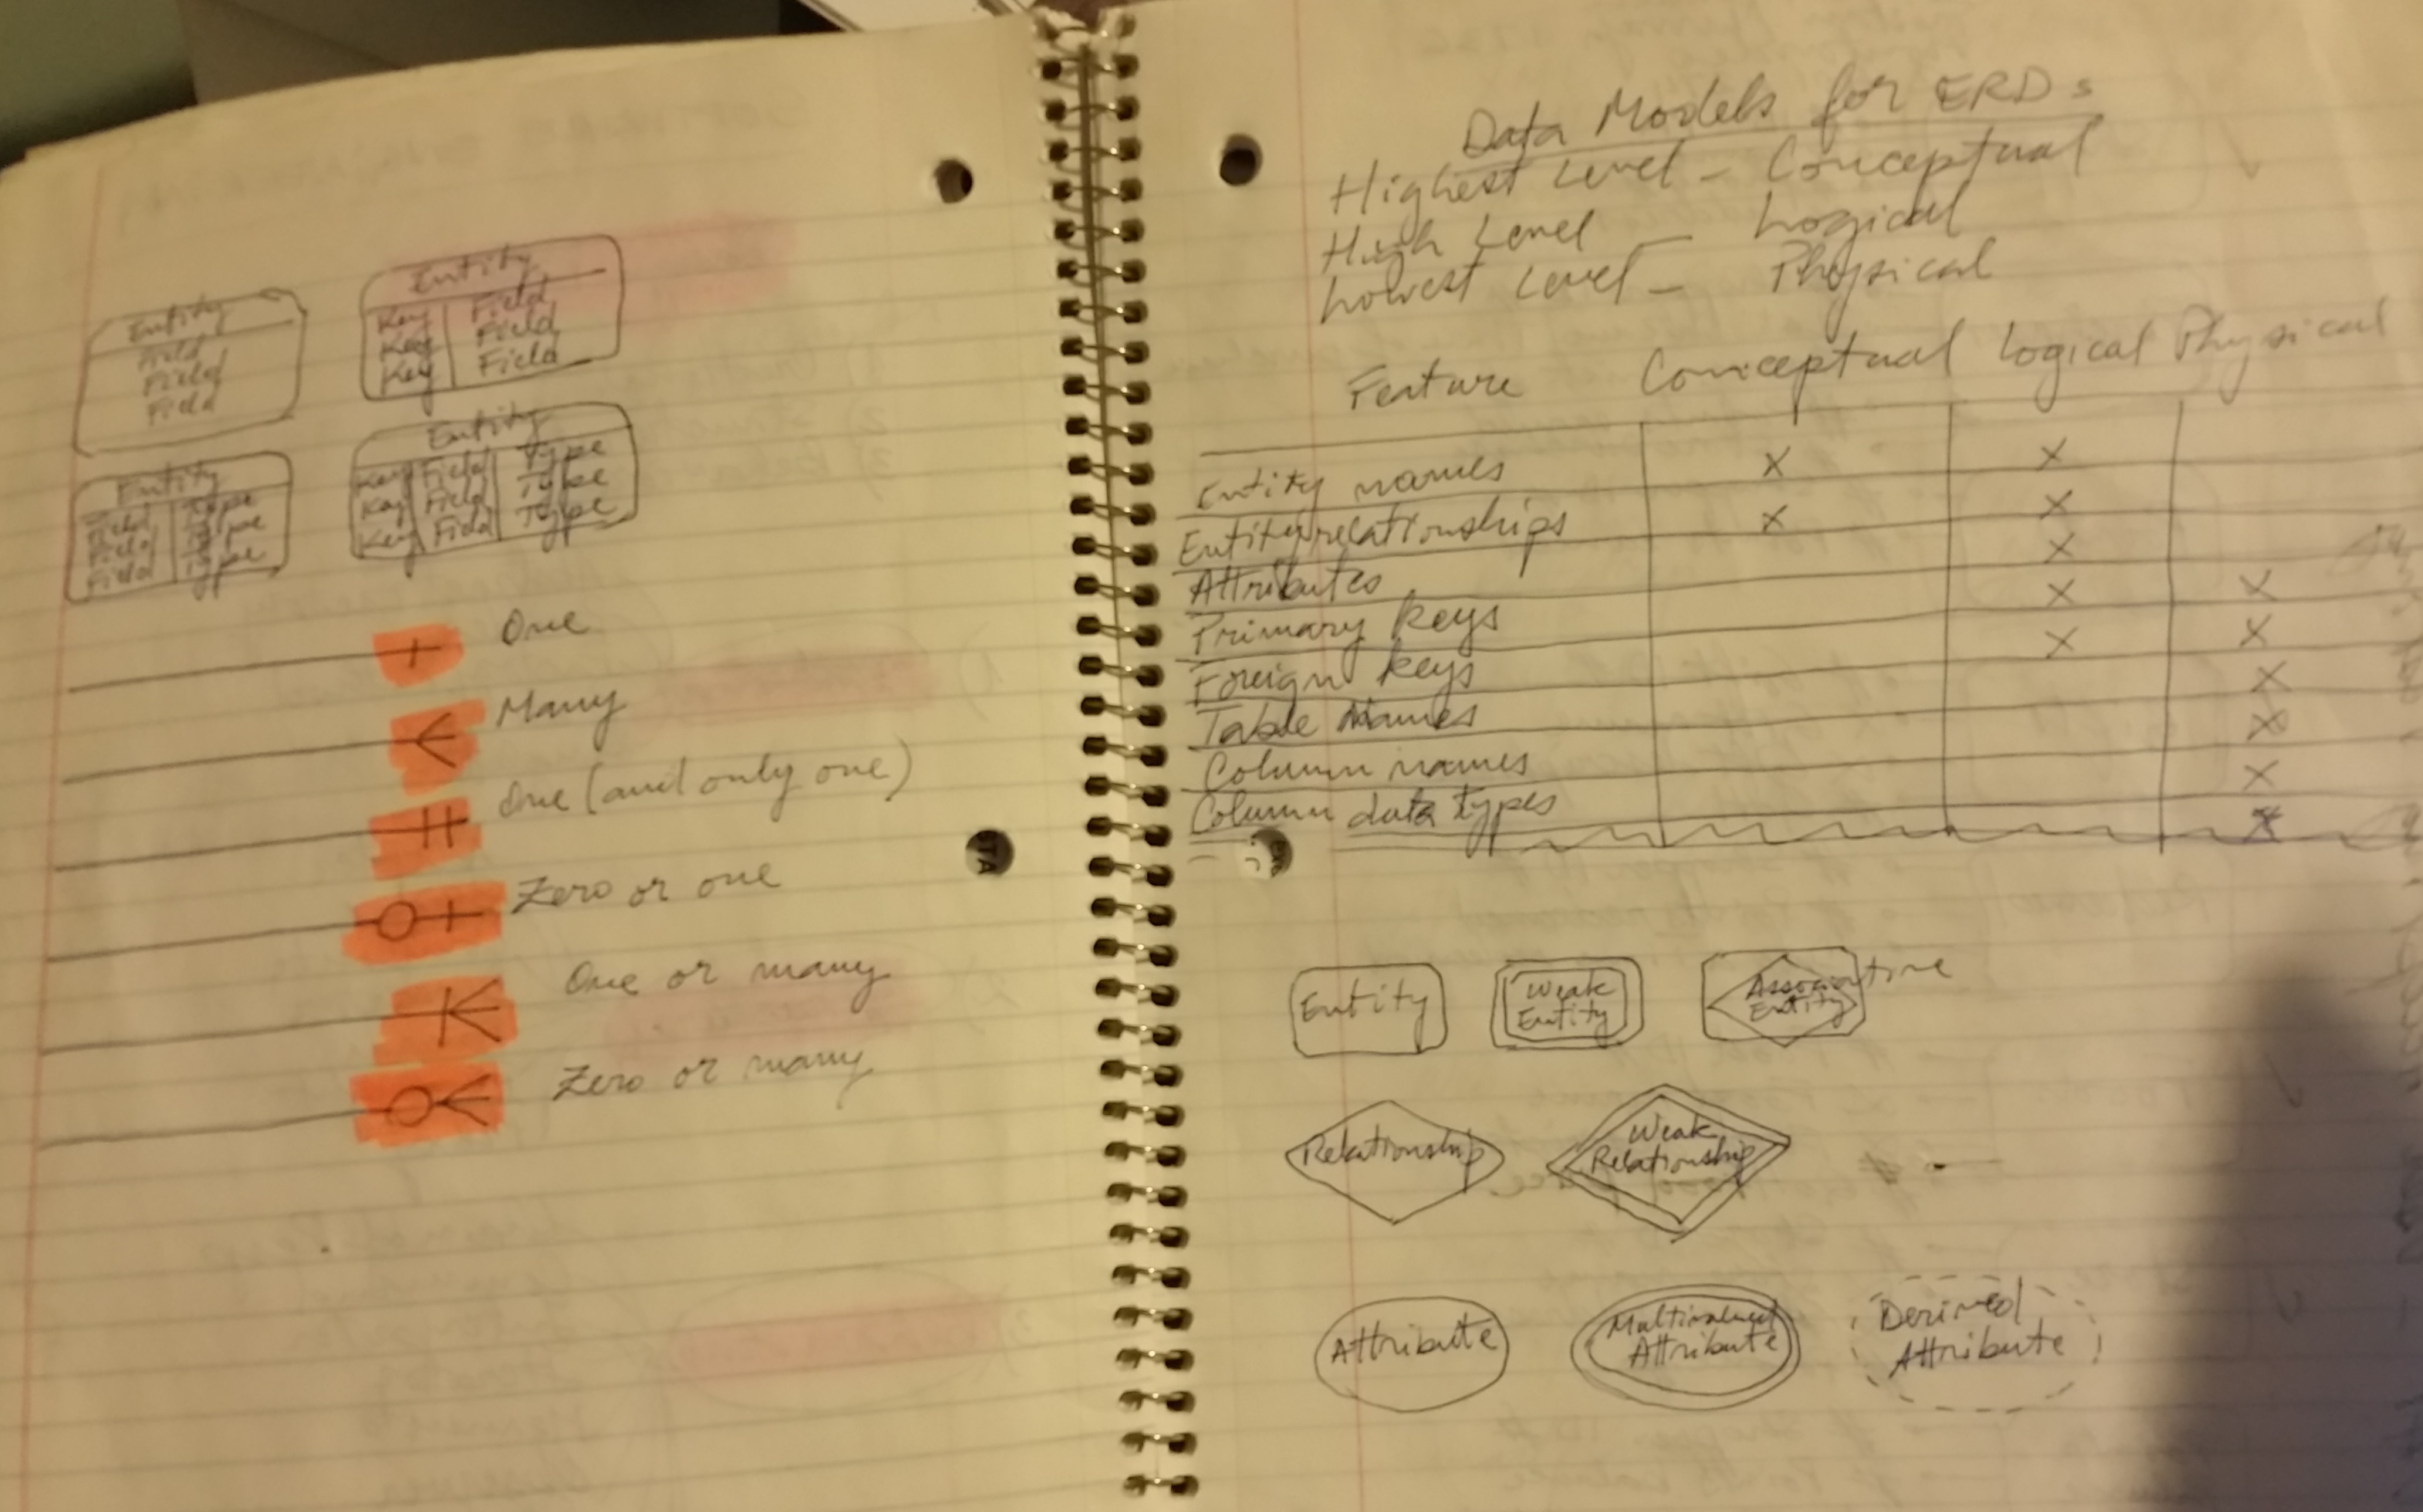 Entity
Field
Field
Field
Entity
Key Field
Key Field
Key Field
Entity
Field Type
Field Type
Field Type
Entity
Key Field Type
Key Field Type
Key Field Type
One
Many
One (and only one)
Zero or one
One or many
Zero or many
Data Models for ERDs
Highest Level - Conceptual
High Level - Logical
Lowest Level - Physical
Feature Conceptual Logical Physical
Entity names X X
Entity relationships X X
Attributes X
Primary keys X X
Foreign keys X X
Table Names X
Column names X
Column data types X
X
Entity
Weak
Entity
Associative
Entity
Relationship
Weak
Relationship
Attribute
Multivalued
Attribute
Derived
Attribute